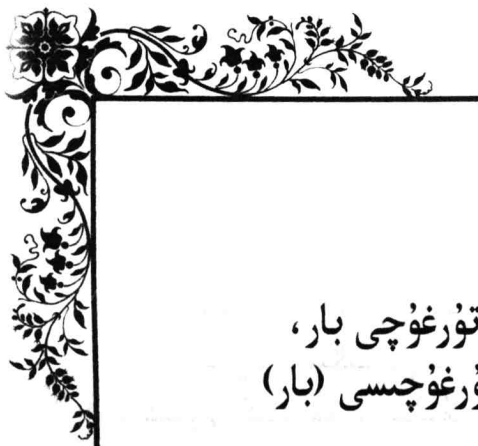 تۇرغۇچى بار،
ۇرغۇچىسى (بار)